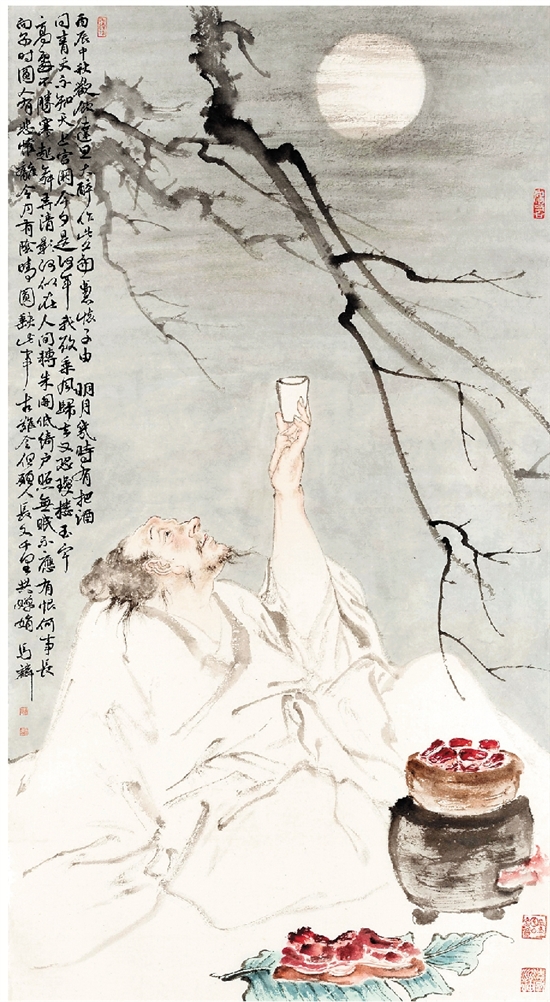 丙辰中秋歡飲達旦大醉作此篇兼懷子由 明月幾時有把酒
問青天不知天上宮闕今夕是何年我欲乘風歸去又恐瓊樓玉宇
高處不勝寒起舞弄清影何似在人間轉朱閣低綺戶照無眠不應有恨何事長
向別時圓人有悲歡離合月有陰晴圓缺此事古難全但願人長久千里共嬋娟